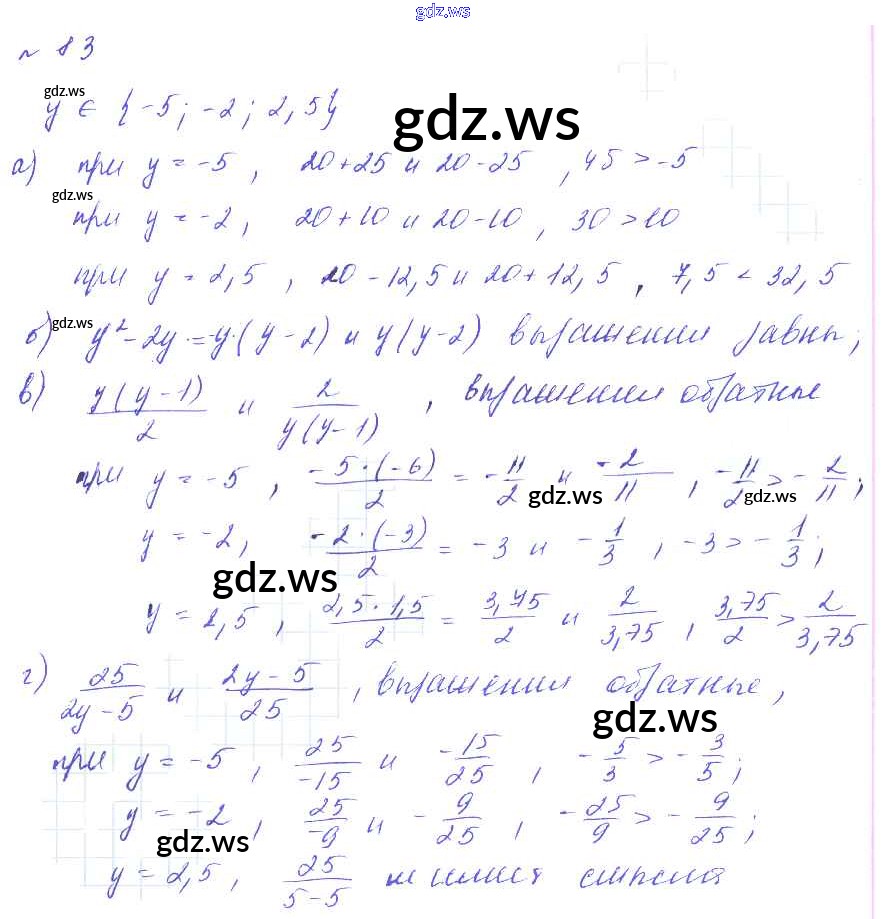 gdz.ws
№ 83
gdz.ws
y ∈ {-5; -2; 2,5}
gdz.ws
а) при y = -5, 20+25 и 20-25, 45 > -5
gdz.ws
при y = -2, 20+10 и 20-10, 30 > 10
при y = 2,5, 20-12,5 и 20+12,5, 7,5 < 32,5
gdz.ws
б) y² - 2y = y·(y-2) и y(y-2) выражения равны;
в) y(y-1)/2 и 2/y(y-1), выражения обратные
при y = -5, -5·(-6)/2 = -11/2 и -2/11, -11/2 > -2/11;
gdz.ws
gdz.ws
y = -2, -2·(-3)/2 = -3 и -1/3, -3 > -1/3;
gdz.ws
y = 2,5, 2,5·1,5/2 = 3,75/2 и 2/3,75, 3,75/2 > 2/3,75
г) 25/2y-5 и 2y-5/25, выражения обратные,
gdz.ws
при y = -5, 25/-15 и -15/25, -5/3 > -3/5;
y = -2, 25/-9 и -9/25, -25/9 > -9/25;
gdz.ws
y = 2,5, 25/5-5 не имеет смысла